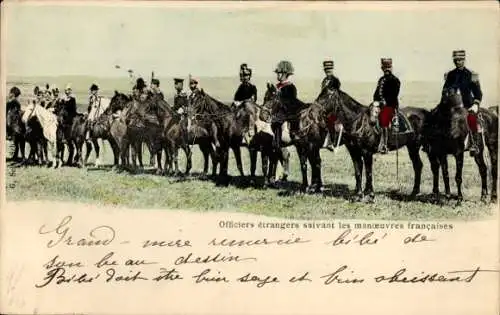 Officiers étrangers suivant les manœuvres françaises
Grand-mère remercie bébé de
son beau dessin
Bébé doit être bien sage et bien obéissant